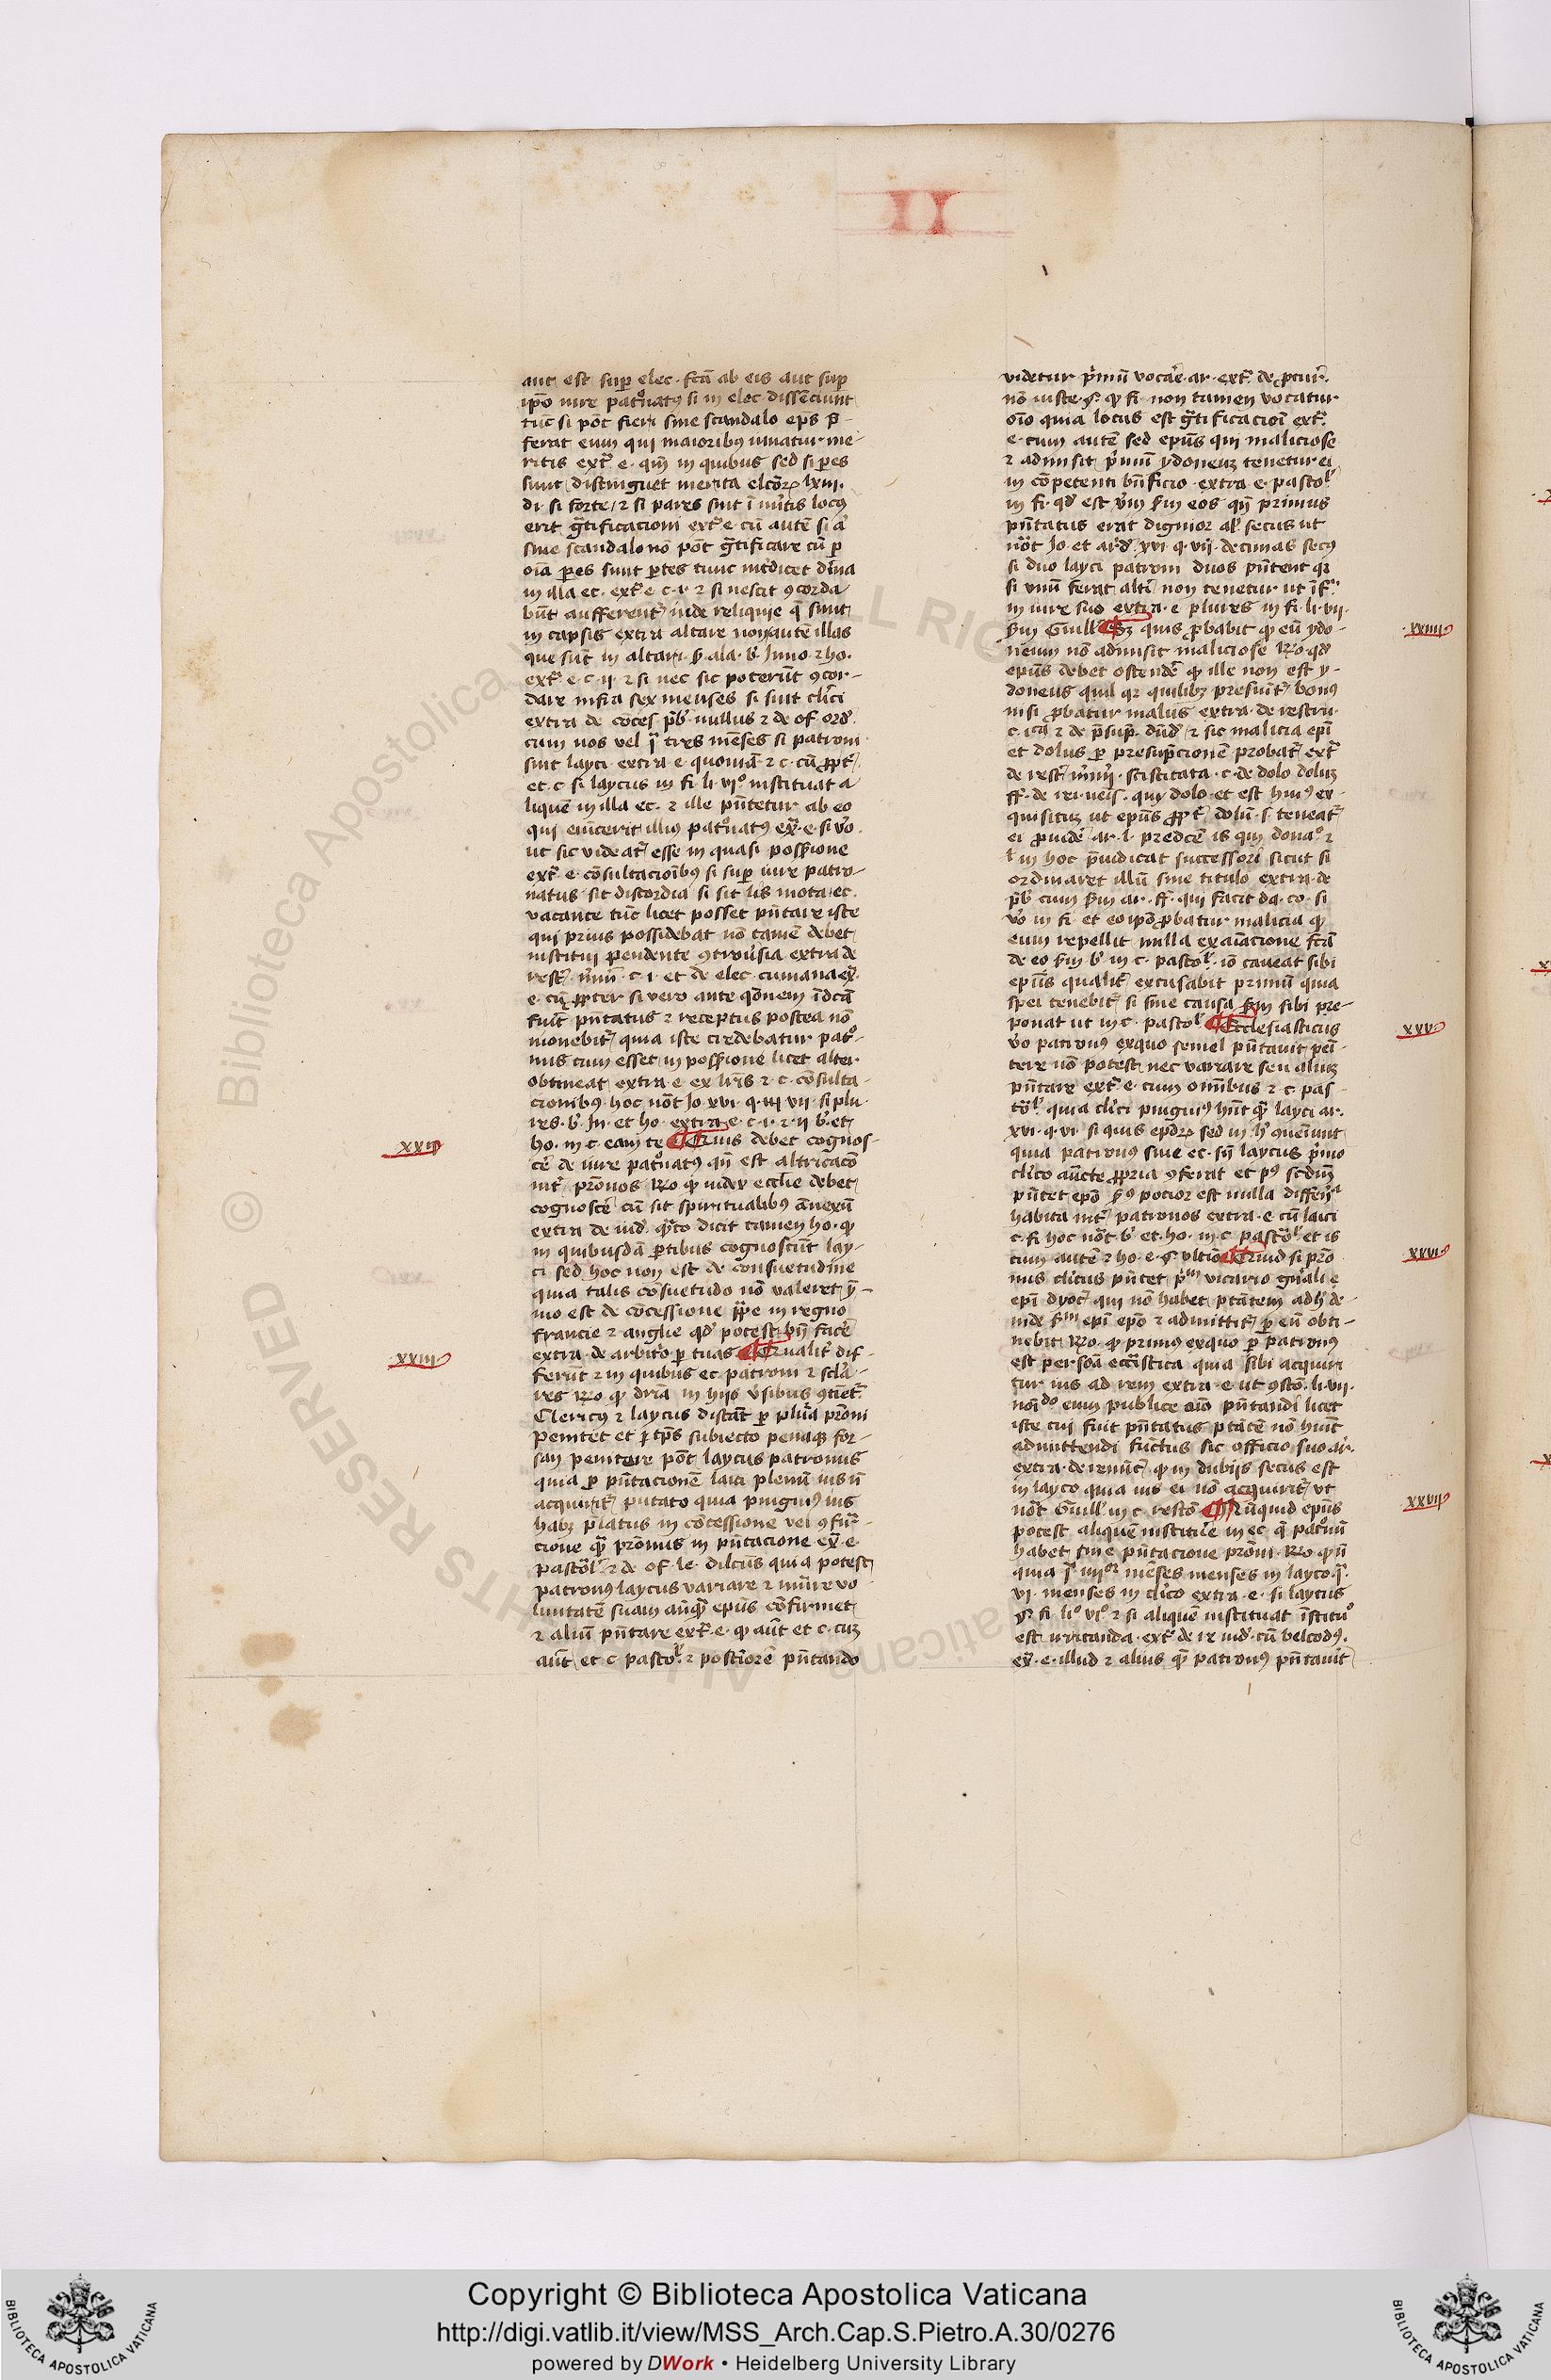 II
aut est sup elec. fcā ab eis aut sup
ip̄o iure pat͛natꝰ si in elec. dissenciunt
tūc si pōt fieri sine scandalo ep̄s p̄-
ferat eum qui maioribꝰ iuuatur me-
ritis ext͛. e. qm̄ in quibus sed si pēs
sunt distinguet merita elcōꝝ lxiii.
di. si forte / ⁊ si pares sint ī mītis locꝰ
erit g̃tificacioni ext͛ e. cū autē si a͛
sine scandalo nō pōt g̃tificare cū p
oīa pēs sunt ptes tunc int͛dicet dīna
in illa ec. ext͛ e. c. i. ⁊ si nescit ꝯcorda
būt aufferent͛ inde reliquie q̄ sunt
in capsis extra altare non autē illas
que sūt in altari. ala. b͛. Inno. ⁊ ho.
ext͛ e. c. ii. ⁊ si nec sic poterūt ꝯcor-
dare infra sex menses si sint cl͛ici
extra de cōces. p̄b͛. nullus ⁊ de of. ord͛.
cum nos vel tres mēses si patroni
sint layci. extra. e. quoniā ⁊ c. cū ꝓpt͛
et. c. si laycus in fi. li. vi͛o. instituat a
liquē in illa ec. ⁊ ille pn̄tetur ab eo
qui euīcerit illiꝰ pat͛natꝰ ex͛. e. si v͛o.
ut sic videat͛ esse in quasi poss͛ione
ext͛ e. cōsultacioībꝰ si sup iure patro-
natus sit discordia si sit lis mota ec.
vacante tūc licet posset pn̄tare iste
qui prius possidebat nō tamē debet
institui pendente ꝯtrou͛sia extra de
rest͛. c. i. et de elec. cumana ex͛.
e. cū ꝓpter si vero ante q͛onem īdcā
fuit pn̄tatus ⁊ receptus postea nō
monebit͛ quia iste credebatur pat͛o-
nus cum esset in poss͛ione licet alter
obtineat extra. e. ex lr̄is ⁊ c. cōsulta-
cionibꝰ. hoc nōt Jo. xvi. q. vii. si plu-
res. b͛. In. et ho. extra. e. c. i. ⁊ ii b͛. et
ho. in c. eam te ¶ Cuius debet cognos-
xxii
c͛e de iure pat͛natꝰ qn̄ est alt͛cacō
int͛ pr̄onos R͛o ꝙ iudex eccl͛ie debet
cognosc͛e cū sit spiritualibꝰ ānexū
extra de iud͛. q͛to dicit tamen ho. ꝙ
in quibusdā ptibus cognoscūt lay-
ci sed hoc non est de consuetudine
quia talis cōsuetudo nō valeret y-
mo est de cōcessione in regno
francie ⁊ anglie qd͛ potest bn̄ fac͛e
extra. de arbit͛o p tuas ¶ Qualit͛ dif-
xxiii
ferūt ⁊ in quibus ec. patroni ⁊ scla͛
res R͛o ꝙ dr̄ia in hijs v͛sibus ꝯtiet͛
Clericꝰ ⁊ laycus distāt p plūa pr̄oni
Penitet et tp̄s subiecto penaqꝫ for-
san penitere pōt laycus patronus
quia p pn̄tacionē laici plenū ius n̄
acquirit͛ putato quia pinguiꝰ ius
habꝫ p͛latus in cōcessione vel ꝯfir͛-
cione q͛ pr̄onus in pn̄tacione ex͛. e.
pastol͛. ⁊ de of. le. dilc̄us quia potest
patronꝰ laycus variare ⁊ mut͛e vo-
luntatē suam ānq͛ epūs cōfirmet
⁊ aliū pn̄tare ext͛. e. ꝙ aut̄ et c. cuꝫ
aut̄ et c pastol͛. ⁊ post͛iorē pn̄tando
videtur p͛mū vocar͛e. ar. ext͛. de ꝓcur͛.
nō iuste. §. ꝙ fi. non tamen vocatur
oīo quia locus est g̃tificacioī ext͛.
e. cum autē sed epūs qui maliciose
⁊ admisit p͛mū ydoneuꝫ tenetur ei
in cōpetenti bn̄ficio. extra. e. pastol͛
in fi. qd͛ est v͛m s͛m eos qn̄ primus
pn̄tatus erat dignior al͛ secus ut
nōt Jo. et ar͛d. xvi. q. vii. decimas secꝰ
si duo layci patroni duos pn̄tent qꝛ
si vnū ferat alt͛i non tenetur ut īf͛.
in iure suo extra. e. plures in fi. li. vii.
s͛m Guill͛. ¶ Sꝫ quis ꝓbabit ꝙ eū ydo-
xxiiii
neum nō admisit maliciose R͛o. qd͛
epūs debet ostend͛e ꝙ ille non est y-
doneus qui͛l qꝛ quilibꝫ presuīt͛ bonꝰ
nisi ꝓbatur malus extra. de rescru.
c. i. ⁊ de p͛sup͛. dūd͛ ⁊ sic malicia epī
et dolus p presūpcionē probat͛ ext͛
de rest͛. scisticata. c. de dolo doluꝫ
ff. de rei. ueīs. qui dolo. et est huiꝰ ex-
quisituꝫ ut epūs ꝓpt͛ dolū. s. teneat͛
ei ꝓuid͛e ar. l. predcē is qui dona͛o. ⁊
l in hoc p̄iudicat successori sicut si
ordinaret illū sine titulo extra. de
p̄b͛ cum s͛m ar. ff. qui facit da. co. si
v͛o in fi. et eo ip̄o ꝓbatur malicia ꝙ
eum repellit nulla exaīacione fcā
de eo s͛m b͛. in c. pastol͛. iō caueat sibi
epūs qualit͛ excusabit primū quia
spei tenebit͛ si sine causa sibi pre-
ponat ut in c. pastol͛ ¶ Ecclesiasticus
xxv
v͛o patronꝰ exquo semel pn̄tauit peī-
tere nō potest nec variare seu aliuꝫ
pn̄tare ext͛. e. cum omībus ⁊ c. pas-
tol͛. quia cl͛ici pinguiꝰ hn̄t q͛ layci ar.
xvi. q. vi. si quis epd͛oꝝ sed in h͛ ꝯueīunt
quia patronꝰ siue ec. siue laycus p͛mo
cl͛ico aūcte ꝓpria ꝯferat et pꝰ scdm̄
pn̄tet epō pocior est nulla differ͛n͛a
habita int͛ patronos extra. e. cū laici
c. fi. hoc nōt b͛. et ho. in c. pastol͛. et is
cum autē ⁊ ho. e. §. vltiō ¶ Quid si pr̄o
xxvi
nus cl͛icus pn̄tet p͛m vicario gn͛ali e
epī dyoc͛. qui nō habet ptātem ad h͛ de-
inde s͛m epī epō ⁊ admittit͛ p eū obti-
nebit R͛o. ꝙ primꝰ exquo p patronꝰ
est persoā ecclīastica quia sibi acquiri
tur ius ad rem extra. e. ut ꝯstō. li. vii.
eum publice aīo pn̄tandi licet
iste cui fuit pn̄tatus ptātē nō hūit
admittendi functus sic officio suo ar͛.
extra. de renūc͛. ꝙ in dubijs secus est
in layco quia ius ei nō acquirit͛ ut
nōt Guill͛ in c. restō ¶ Nūquid epūs
xxvii
potest aliquē instit͛ue in ec. q̄ pat͛nū
habet sine pn̄tacione pr̄oni. R͛o ꝙ n̄
quia mēses menses in layco.
vi. menses in cl͛ico extra. e. si laycus
§. fi. li͛o vi͛o. ⁊ si aliquē instituat īstitu͛o
est irritanda. ext͛ de re iud͛. cū belcodꝰ.
ex͛. e. illud ⁊ alius q͛ patronꝰ pn̄tauit
© Biblioteca Apostolica Vaticana ALL RIGHTS RESERVED
Copyright © Biblioteca Apostolica Vaticana
http://digi.vatlib.it/view/MSS_Arch.Cap.S.Pietro.A.30/0276
powered by DWork • Heidelberg University Library
BIBLIOTECA APOSTOLICA VATICANA
BIBLIOTECA APOSTOLICA VATICANA